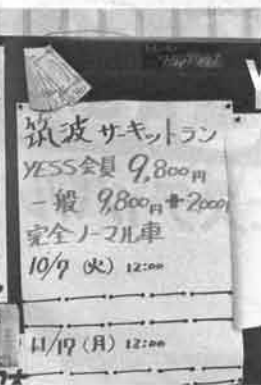 筑波 サーキットラン
YESS会員 9,800円
一般 9,800円+2000
完全ノーマル車
10/7 (火) 12:00
11/17 (月) 12:00